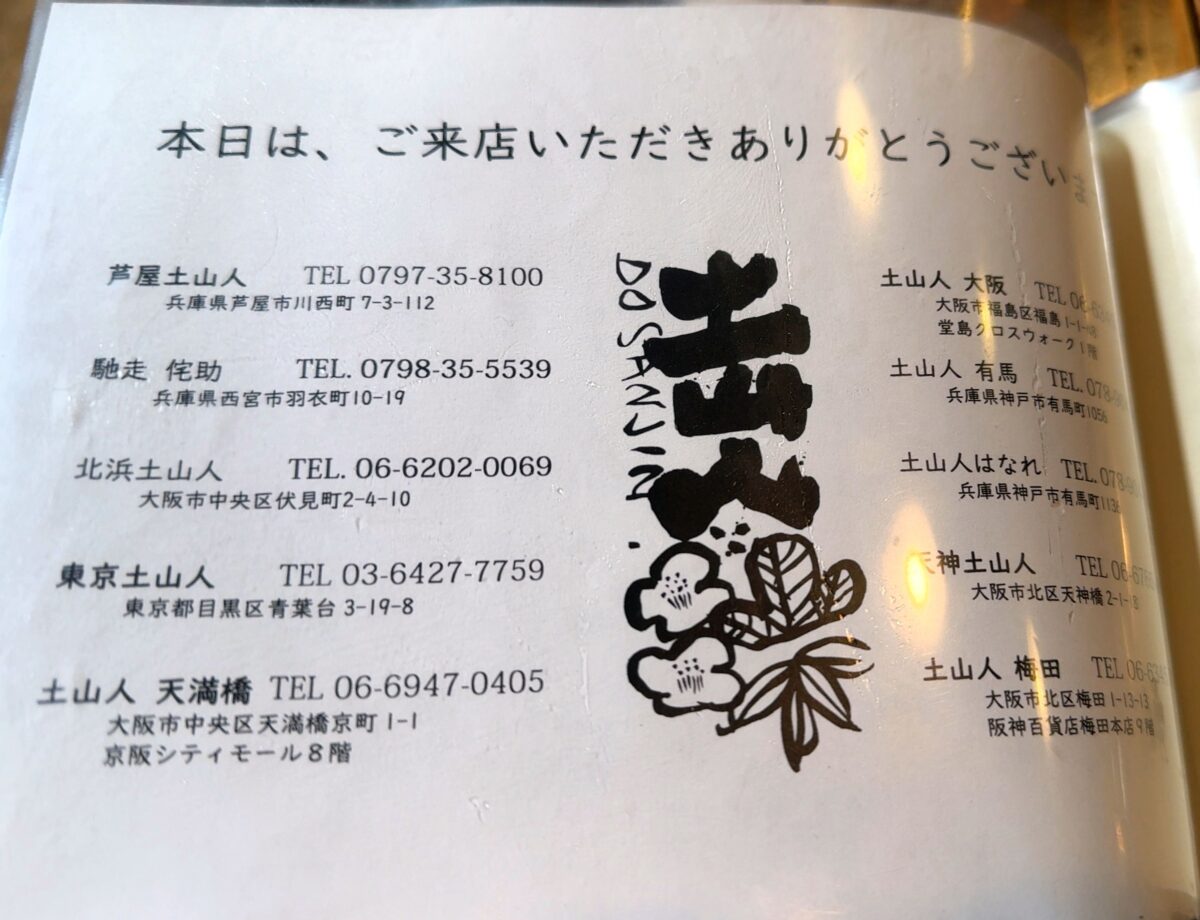 本日は、ご来店いただきありがとうございま
芦屋土山人 TEL 0797-35-8100
兵庫県芦屋市川西町 7-3-112
馳走 侘助 TEL. 0798-35-5539
兵庫県西宮市羽衣町10-19
北浜土山人 TEL. 06-6202-0069
大阪市中央区伏見町2-4-10
東京土山人 TEL 03-6427-7759
東京都目黒区青葉台 3-19-8
土山人 天満橋 TEL 06-6947-0405
大阪市中央区天満橋京町 1-1
京阪シティモール8階
DOSANJIN.
土山人
土山人 大阪 TEL
大阪市福島区福島
堂島クロスウォーク1階
土山人 有馬 TEL.
兵庫県神戸市有馬町1056
土山人はなれ TEL.
兵庫県神戸市有馬町
天神土山人 TEL
大阪市北区天神橋
土山人 梅田 TEL
大阪市北区梅田 1-13-13
阪神百貨店梅田本店9階